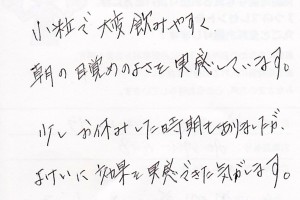 小粒で大変飲みやすく
朝の目覚めのよさを実感しています。
少しお休みした時期もありましたが、
よけいに効果を実感できた気がします。